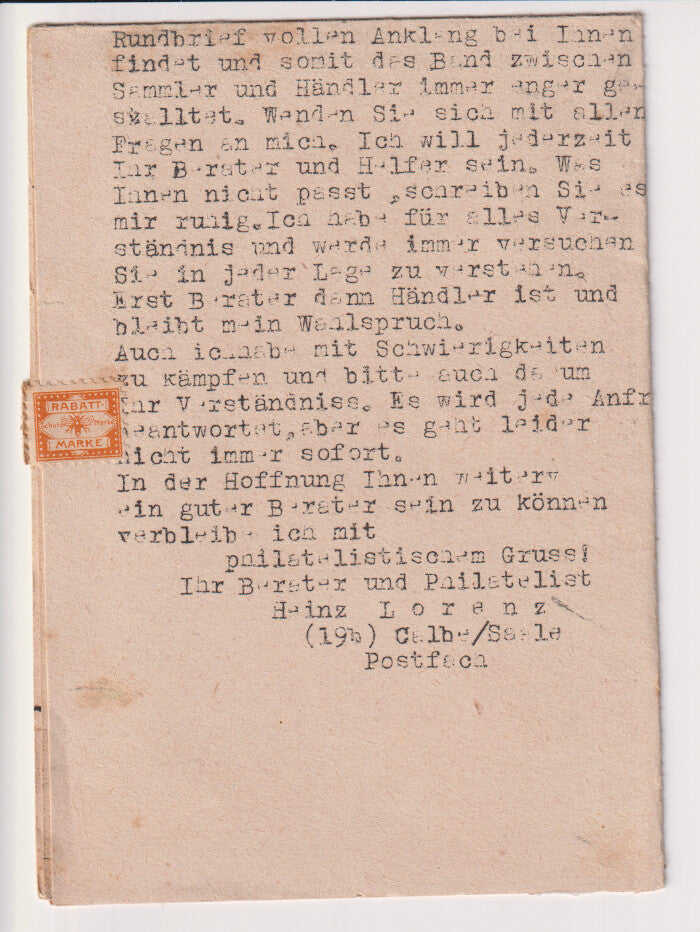 Rundbrief vollen Anklang bei Ihnen
findet und somit das Band zwischen
Sammler und Händler immer enger ge-
stalltet. Wenden Sie sich mit allen
Fragen an mich. Ich will jederzeit
Ihr Berater und Helfer sein. Was
Ihnen nicht passt ,schreiben Sie es
mir ruhig.Ich habe für alles Ver-
ständnis und werde immer versuchen
Sie in jeder Lage zu verstehen.
Erst Berater dann Händler ist und
bleibt mein Wahlspruch.
Auch ichhabe mit Schwierigkeiten
zu kämpfen und bitte auch darum
Ihr Verständniss. Es wird jede Anfr
beantwortet,aber es geht leider
nicht immer sofort.
In der Hoffnung Ihnen weiterv
ein guter Berater sein zu können
verbleibe ich mit
philatelistischem Gruss!
Ihr Berater und Philatelist
Heinz Lorenz
(19b) Calbe/Saale
Postfach
RABATT-
Schutz Marke
MARKE